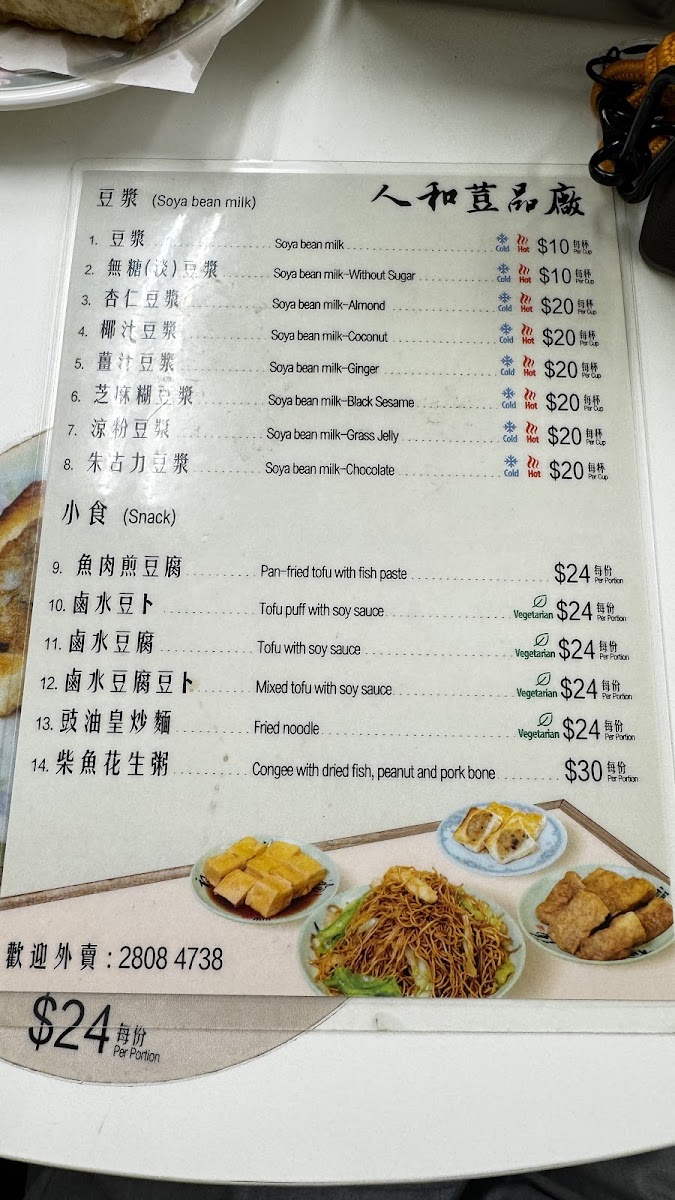 豆漿 (Soya bean milk) 人和荳品廠
1. 豆漿 Soya bean milk Cold Hot $10 每杯 Per Cup
2. 無糖(淡)豆漿 Soya bean milk-Without Sugar Cold Hot $10 每杯 Per Cup
3. 杏仁豆漿 Soya bean milk-Almond Cold Hot $20 每杯 Per Cup
4. 椰汁豆漿 Soya bean milk-Coconut Cold Hot $20 每杯 Per Cup
5. 薑汁豆漿 Soya bean milk-Ginger Cold Hot $20 每杯 Per Cup
6. 芝麻糊豆漿 Soya bean milk-Black Sesame Cold Hot $20 每杯 Per Cup
7. 涼粉豆漿 Soya bean milk-Grass Jelly Cold Hot $20 每杯 Per Cup
8. 朱古力豆漿 Soya bean milk-Chocolate Cold Hot $20 每杯 Per Cup
小食 (Snack)
9. 魚肉煎豆腐 Pan-fried tofu with fish paste $24 每份 Per Portion
10. 鹵水豆卜 Tofu puff with soy sauce Vegetarian $24 每份 Per Portion
11. 鹵水豆腐 Tofu with soy sauce Vegetarian $24 每份 Per Portion
12. 鹵水豆腐豆卜 Mixed tofu with soy sauce Vegetarian $24 每份 Per Portion
13. 豉油皇炒麵 Fried noodle Vegetarian $24 每份 Per Portion
14. 柴魚花生粥 Congee with dried fish, peanut and pork bone $30 每份 Per Portion
歡迎外賣 : 2808 4738
$24 每份 Per Portion